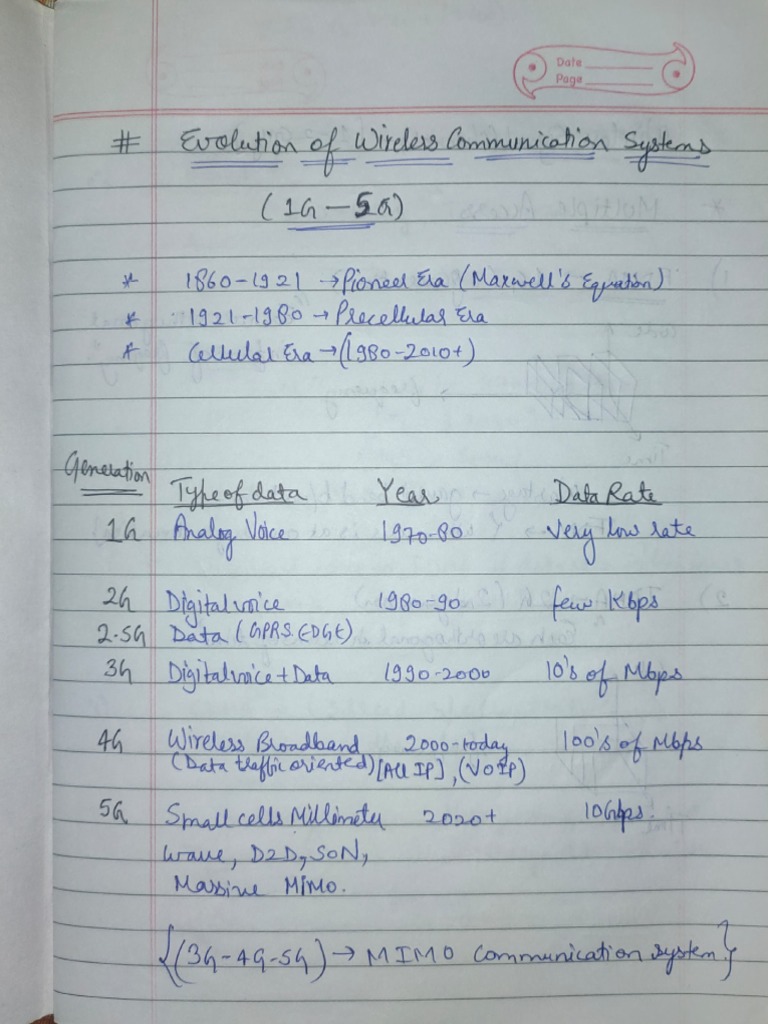 Date
Page
# Evolution of Wireless Communication Systems
(1G - 5G)
* 1860-1921 → Pioneer Era (Maxwell's Equation)
* 1921-1980 → Precellular Era
* Cellular Era → (1980-2010+)
Generation Type of data Year Data Rate
1G Analog Voice 1970-80 Very low rate
2G Digital voice 1980-90 few Kbps
2.5G Data (GPRS EDGE)
3G Digital voice + Data 1990-2000 10's of Mbps
4G Wireless Broadband 2000-today 100's of Mbps
(Data traffic oriented) [All IP], (VOIP)
5G Small cells Millimeter 2020+ 10Gbps.
wave, D2D, SON,
Massive MIMO.
{(3G-4G-5G) → MIMO Communication system}